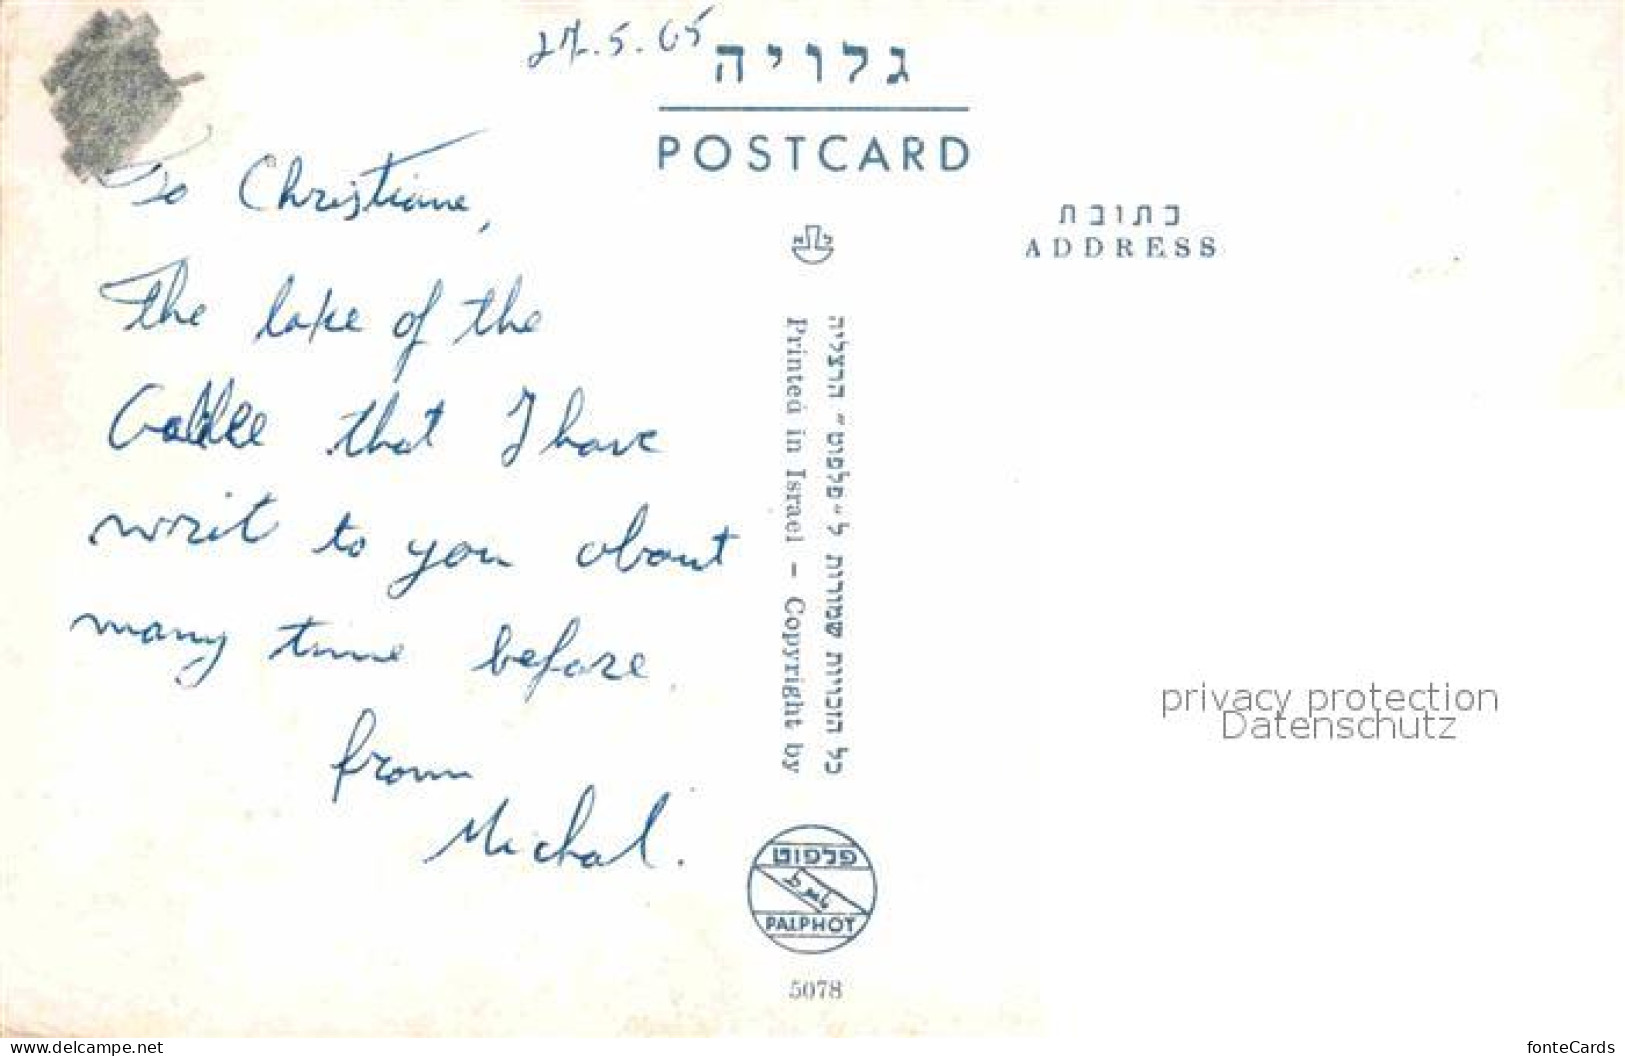 27.5.65
גלויה
POSTCARD
To Christiane,
The lake of the
Galilee that I have
writ to you about
many time before.
from
Michal.
כתובת
ADDRESS
כל הזכויות שמורות ל״פלפוט״ הרצליה
Printed in Israel – Copyright by
פלפוט
PALPHOT
5078
privacy protection
Datenschutz
www.delcampe.net
fonteCards